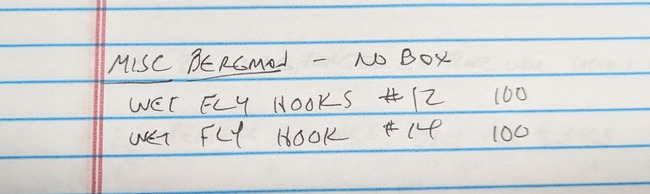 MISC BERGMAN - NO BOX
WET FLY HOOKS #12 100
WET FLY HOOK #14 100